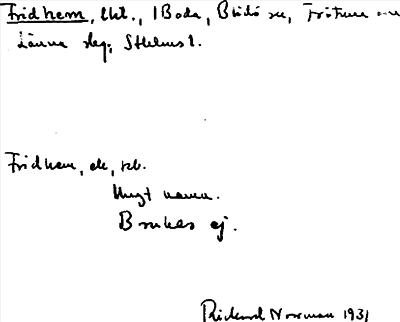 Fridhem, lht., 1 Boda, Blidö sn, Frötuna och
Länna slg, Sthlms l.
Fridhem, ek, kb.
Ungt namn.
Brukas ej.
Rickard Norrman 1931